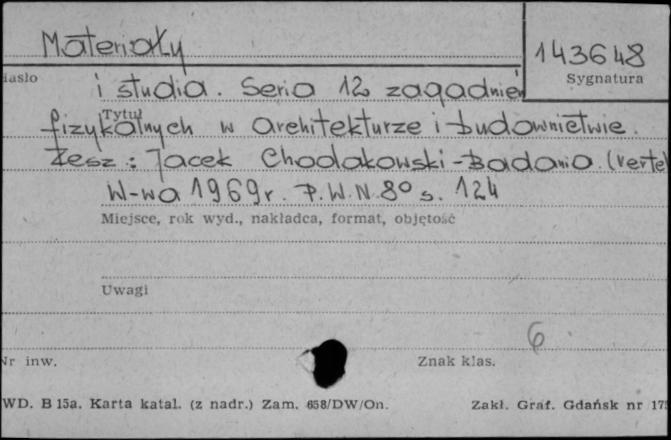 Materiały
143648
iasło
Sygnatura
i studia. Seria 12 zagadnień
Tytuł
fizykalnych w architekturze i budownictwie.
Zesz: Jacek Chodakowski - Badania. (verte)
W-wa 1969r. P.W.N. 8° s. 124
Miejsce, rok wyd., nakładca, format, objętość
Uwagi
6
Nr inw.
Znak klas.
WD. B 15a. Karta katal. (z nadr.) Zam. 658/DW/On.
Zakł. Graf. Gdańsk nr 175